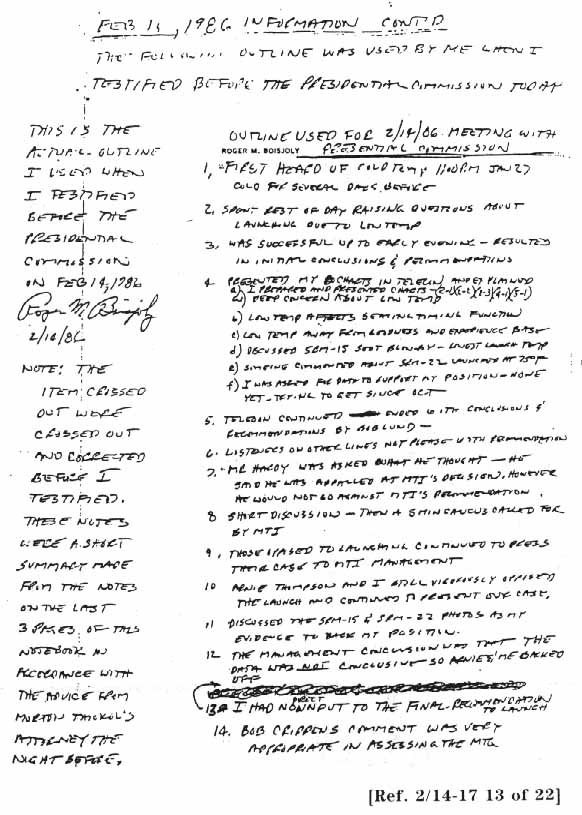 FEB 14, 1986 INFORMATION CONT'D
THE FOLLOWING OUTLINE WAS USED BY ME WHEN I
TESTIFIED BEFORE THE PRESIDENTIAL COMMISSION TODAY
THIS IS THE
ACTUAL OUTLINE
I USED WHEN
I TESTIFIED
BEFORE THE
PRESIDENTIAL
COMMISSION
ON FEB 14, 1986
Roger M Boisjoly
2/16/86
NOTE: THE
ITEM CROSSED
OUT WERE
CROSSED OUT
AND CORRECTED
BEFORE I
TESTIFIED.
THESE NOTES
WERE A SHORT
SUMMARY MADE
FROM THE NOTES
ON THE LAST
3 PAGES OF THIS
NOTEBOOK IN
ACCORDANCE WITH
THE ADVICE FROM
MORTON THIOKOL'S
ATTORNEY THE
NIGHT BEFORE.
OUTLINE USED FOR 2/14/86 MEETING WITH
ROGER M. BOISJOLY PRESIDENTIAL COMMISSION
1, FIRST HEARD OF COLD TEMP 1:00PM JAN 27
COLD FOR SEVERAL DAYS BEFORE
2, SPENT REST OF DAY RAISING QUESTIONS ABOUT
LAUNCHING DUE TO LOW TEMP
3, WAS SUCCESSFUL UP TO EARLY EVENING - RESULTED
IN INITIAL CONCLUSIONS & RECOMMENDATIONS
4. PRESENTED MY CHARTS IN TELECON AND EXPLAINED
a) I PREPARED AND PRESENTED CHARTS
DEEP CONCERN ABOUT LOW TEMP
b) LOW TEMP AFFECTS SEALING TIMING FUNCTION
c) LOW TEMP AWAY FROM GOODNESS AND EXPERIENCE BASE
d) DISCUSSED SRM-15 SOOT BLOWBY - LOWEST LAUNCH TEMP
e) SOMEONE COMMENTED ABOUT SRM-22 LAUNCHED AT 75°F
f) I WAS ASKED FOR DATA TO SUPPORT MY POSITION - NONE
YET - TRYING TO GET SINCE OCT
5. TELECON CONTINUED ENDED WITH CONCLUSIONS &
RECOMMENDATIONS BY BOB LUND -
6. LISTENERS ON OTHER LINES NOT PLEASED WITH RECOMMENDATION
7. MR HARDY WAS ASKED WHAT HE THOUGHT - HE
SAID HE WAS APPALLED AT MTI'S DECISION. HOWEVER
HE WOULD NOT GO AGAINST MTI'S RECOMMENDATION.
8 SHORT DISCUSSION - THEN A 5 MIN CAUCUS CALLED FOR
BY MTI
9, THOSE OPPOSED TO LAUNCHING CONTINUED TO PRESS
THEIR CASE TO MTI MANAGEMENT
10 ARNIE THOMPSON AND I STILL VIGOROUSLY OPPOSED
THE LAUNCH AND CONTINUED TO PRESENT OUR CASE.
11 DISCUSSED THE SRM-15 & SRM-22 PHOTOS AS MY
EVIDENCE TO BACK MY POSITION.
12 THE MANAGEMENT CONCLUSION WAS THAT THE
DATA WAS NOT CONCLUSIVE SO ARNIE & ME BACKED
OFF
13 I HAD NO DIRECT INPUT TO THE FINAL RECOMMENDATION
TO LAUNCH
14. BOB CRIPPENS COMMENT WAS VERY
APPROPRIATE IN ASSESSING THE MTG
[Ref. 2/14-17 13 of 22]